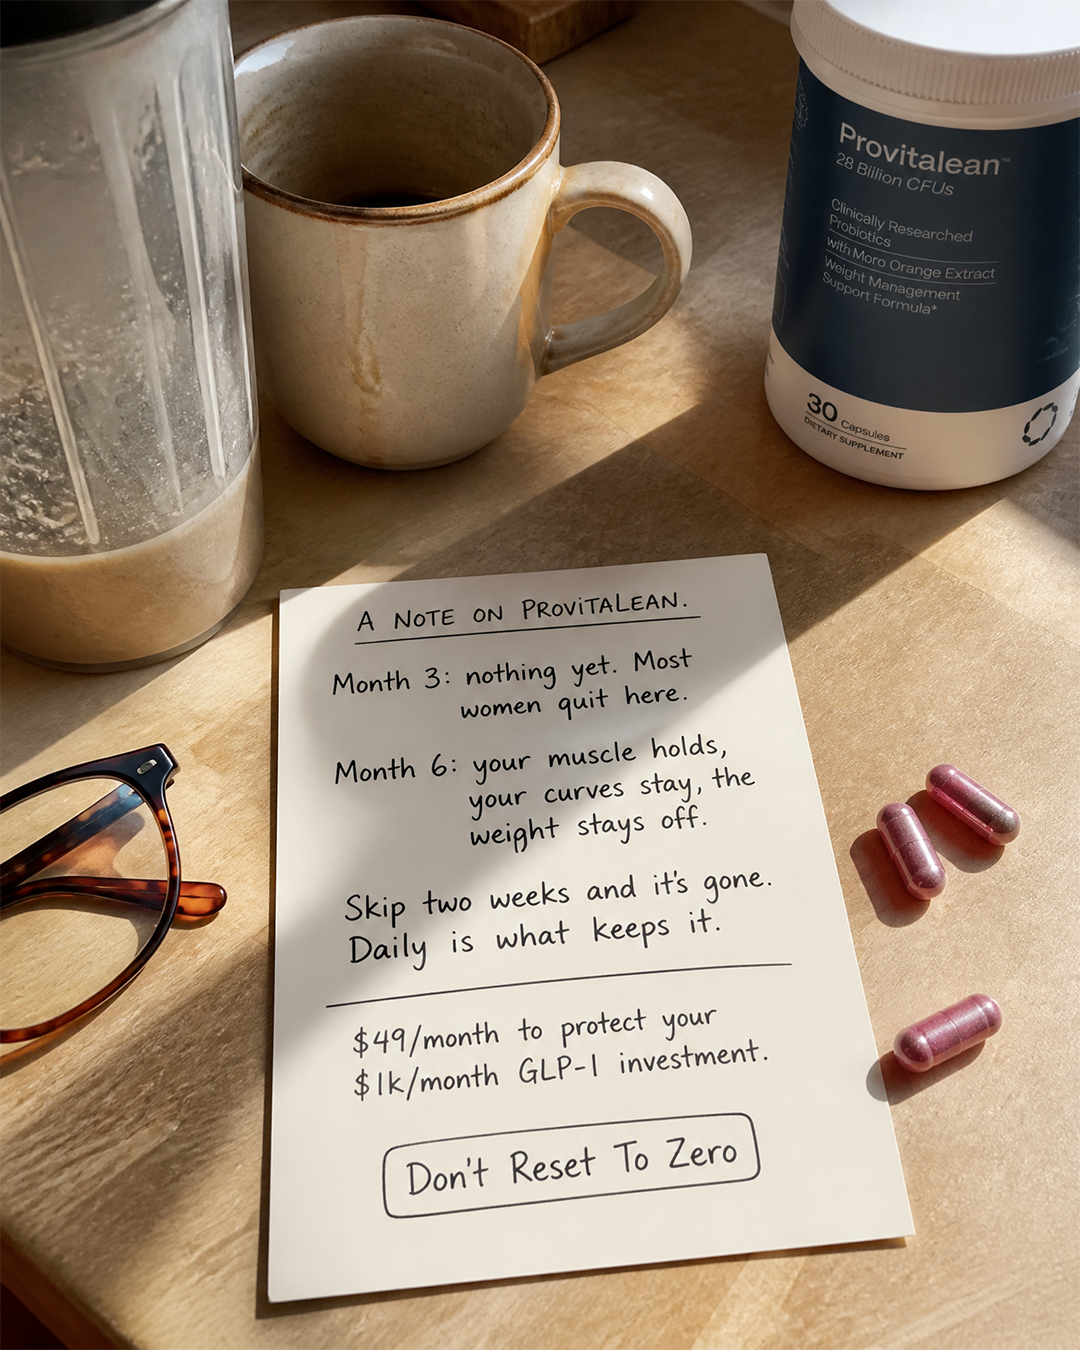 Provitalean™
28 Billion CFUs
Clinically Researched
Probiotics
with Moro Orange Extract
Weight Management
Support Formula*
30 Capsules
DIETARY SUPPLEMENT
A NOTE ON PROVITALEAN.
Month 3: nothing yet. Most
women quit here.
Month 6: your muscle holds,
your curves stay, the
weight stays off.
Skip two weeks and it's gone.
Daily is what keeps it.
$49/month to protect your
$1k/month GLP-1 investment.
Don't Reset To Zero